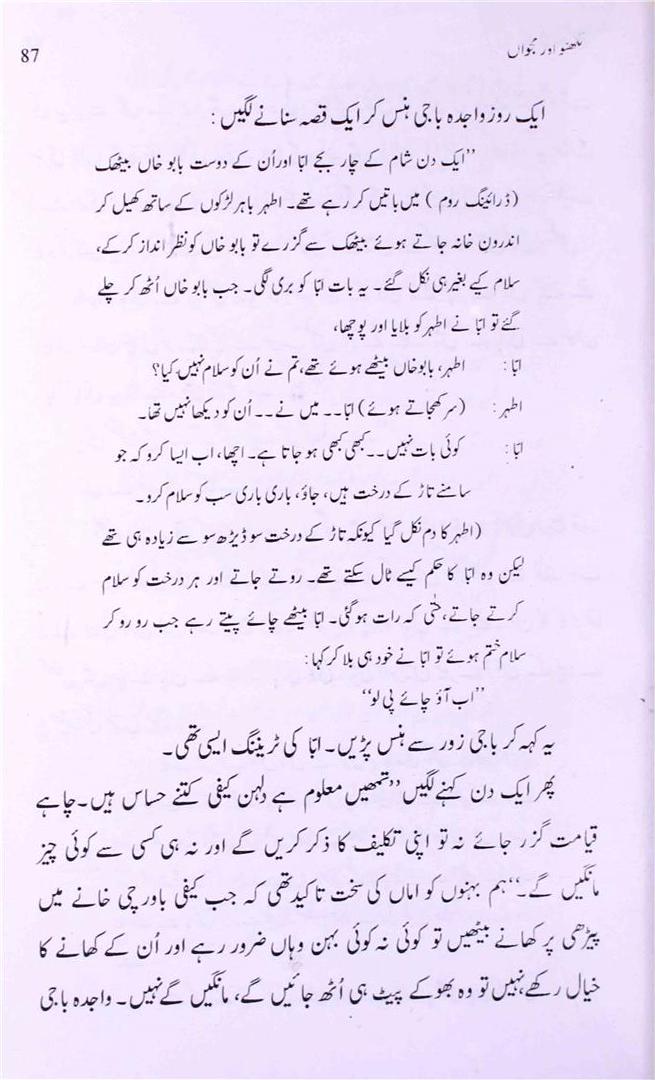 لکھنؤ اور مجواں
87
ایک روز واجدہ باجی ہنس کر ایک قصہ سنانے لگیں:
”ایک دن شام کے چار بجے ابّا اور اُن کے دوست بابو خاں بیٹھک
(ڈرائینگ روم) میں باتیں کر رہے تھے۔ اطہر باہر لڑکوں کے ساتھ کھیل کر
اندرون خانہ جاتے ہوئے بیٹھک سے گزرے تو بابو خاں کو نظر انداز کرکے،
سلام کیے بغیر ہی نکل گئے۔ یہ بات ابّا کو بری لگی۔ جب بابو خاں اُٹھ کر چلے
گئے تو ابّا نے اطہر کو بلایا اور پوچھا،
ابّا: اطہر، بابو خاں بیٹھے ہوئے تھے، تم نے اُن کو سلام نہیں کیا؟
اطہر: (سر کھجاتے ہوئے) ابّا۔۔ میں نے۔۔ اُن کو دیکھا نہیں تھا۔
ابّا: کوئی بات نہیں۔۔ کبھی کبھی ہو جاتا ہے۔ اچھا، اب ایسا کرو کہ جو
سامنے تاڑ کے درخت ہیں، جاؤ، باری باری سب کو سلام کرو۔
(اطہر کا دم نکل گیا کیونکہ تاڑ کے درخت سو ڈیڑھ سو سے زیادہ ہی تھے
لیکن وہ ابّا کا حکم کیسے ٹال سکتے تھے۔ روتے جاتے اور ہر درخت کو سلام
کرتے جاتے، حتٰی کہ رات ہوگئی۔ ابّا بیٹھے چائے پیتے رہے جب رو رو کر
سلام ختم ہوئے تو ابّا نے خود ہی بلا کر کہا:
”اب آؤ چائے پی لو“
یہ کہہ کر باجی زور سے ہنس پڑیں۔ ابّا کی ٹریننگ ایسی تھی۔
پھر ایک دن کہنے لگیں ”تمھیں معلوم ہے دلہن کیفی کتنے حساس ہیں۔ چاہے
قیامت گزر جائے نہ تو اپنی تکلیف کا ذکر کریں گے اور نہ ہی کسی سے کوئی چیز
مانگیں گے۔“ ہم بہنوں کو اماں کی سخت تاکید تھی کہ جب کیفی باورچی خانے میں
پیڑھی پر کھانے بیٹھیں تو کوئی نہ کوئی بہن وہاں ضرور رہے اور اُن کے کھانے کا
خیال رکھے، نہیں تو وہ بھوکے پیٹ ہی اُٹھ جائیں گے، مانگیں گے نہیں۔ واجدہ باجی